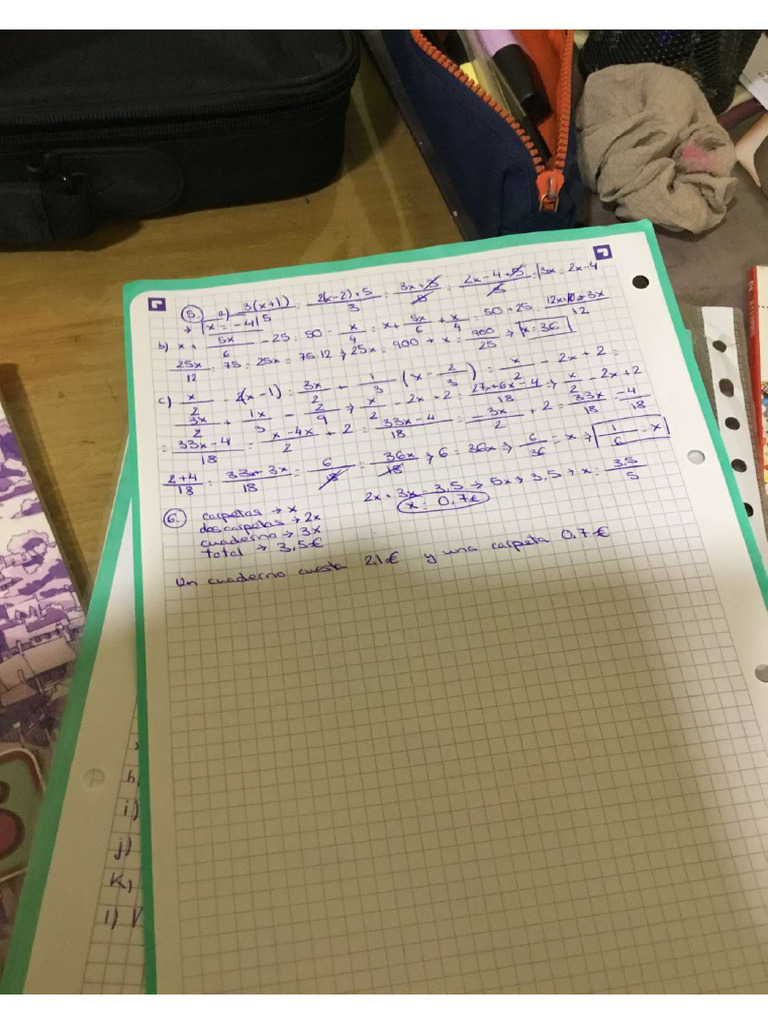 5. a) 3(x+1)/5 = 2(x-2)+5/3 = 3x+3/5 = 2x-4+5/5 = 3x = 2x-4
→ x = -4
b) x + 5x/6 - 25 = 50 - x/4 = x + 5x/6 + x/4 = 50 + 25 = 12x+10x+3x/12
25x/12 = 75 = 25x = 75·12 → 25x = 900 → x = 900/25 → x = 36
c) x/2 - 2(x-1) = 3x/2 + 1/3 (x - 2/3) = x/2 - 2x + 2 =
3x/2 + 1x/3 - 2/9 → x/2 - 2x + 2 = 27x+6x-4/18 → x/2 - 2x + 2
= 33x-4/18 = x-4x/2 + 2 = 33x-4/18 = -3x/2 + 2 = 33x/18 - 4/18
2+4/18 = 33x 3x/18 = 6/18 = 36x/18 → 6 = 36x → 6/36 = x → 1/6 = x
6. carpetas → x
dos carpetas → 2x
cuaderno → 3x
total → 3,5€
2x + 3x = 3,5 → 5x → 3,5 → x = 3,5/5
x = 0,7€
Un cuaderno cuesta 2,1€ y una carpeta 0,7€
h,
i)
j)
K)
l) V